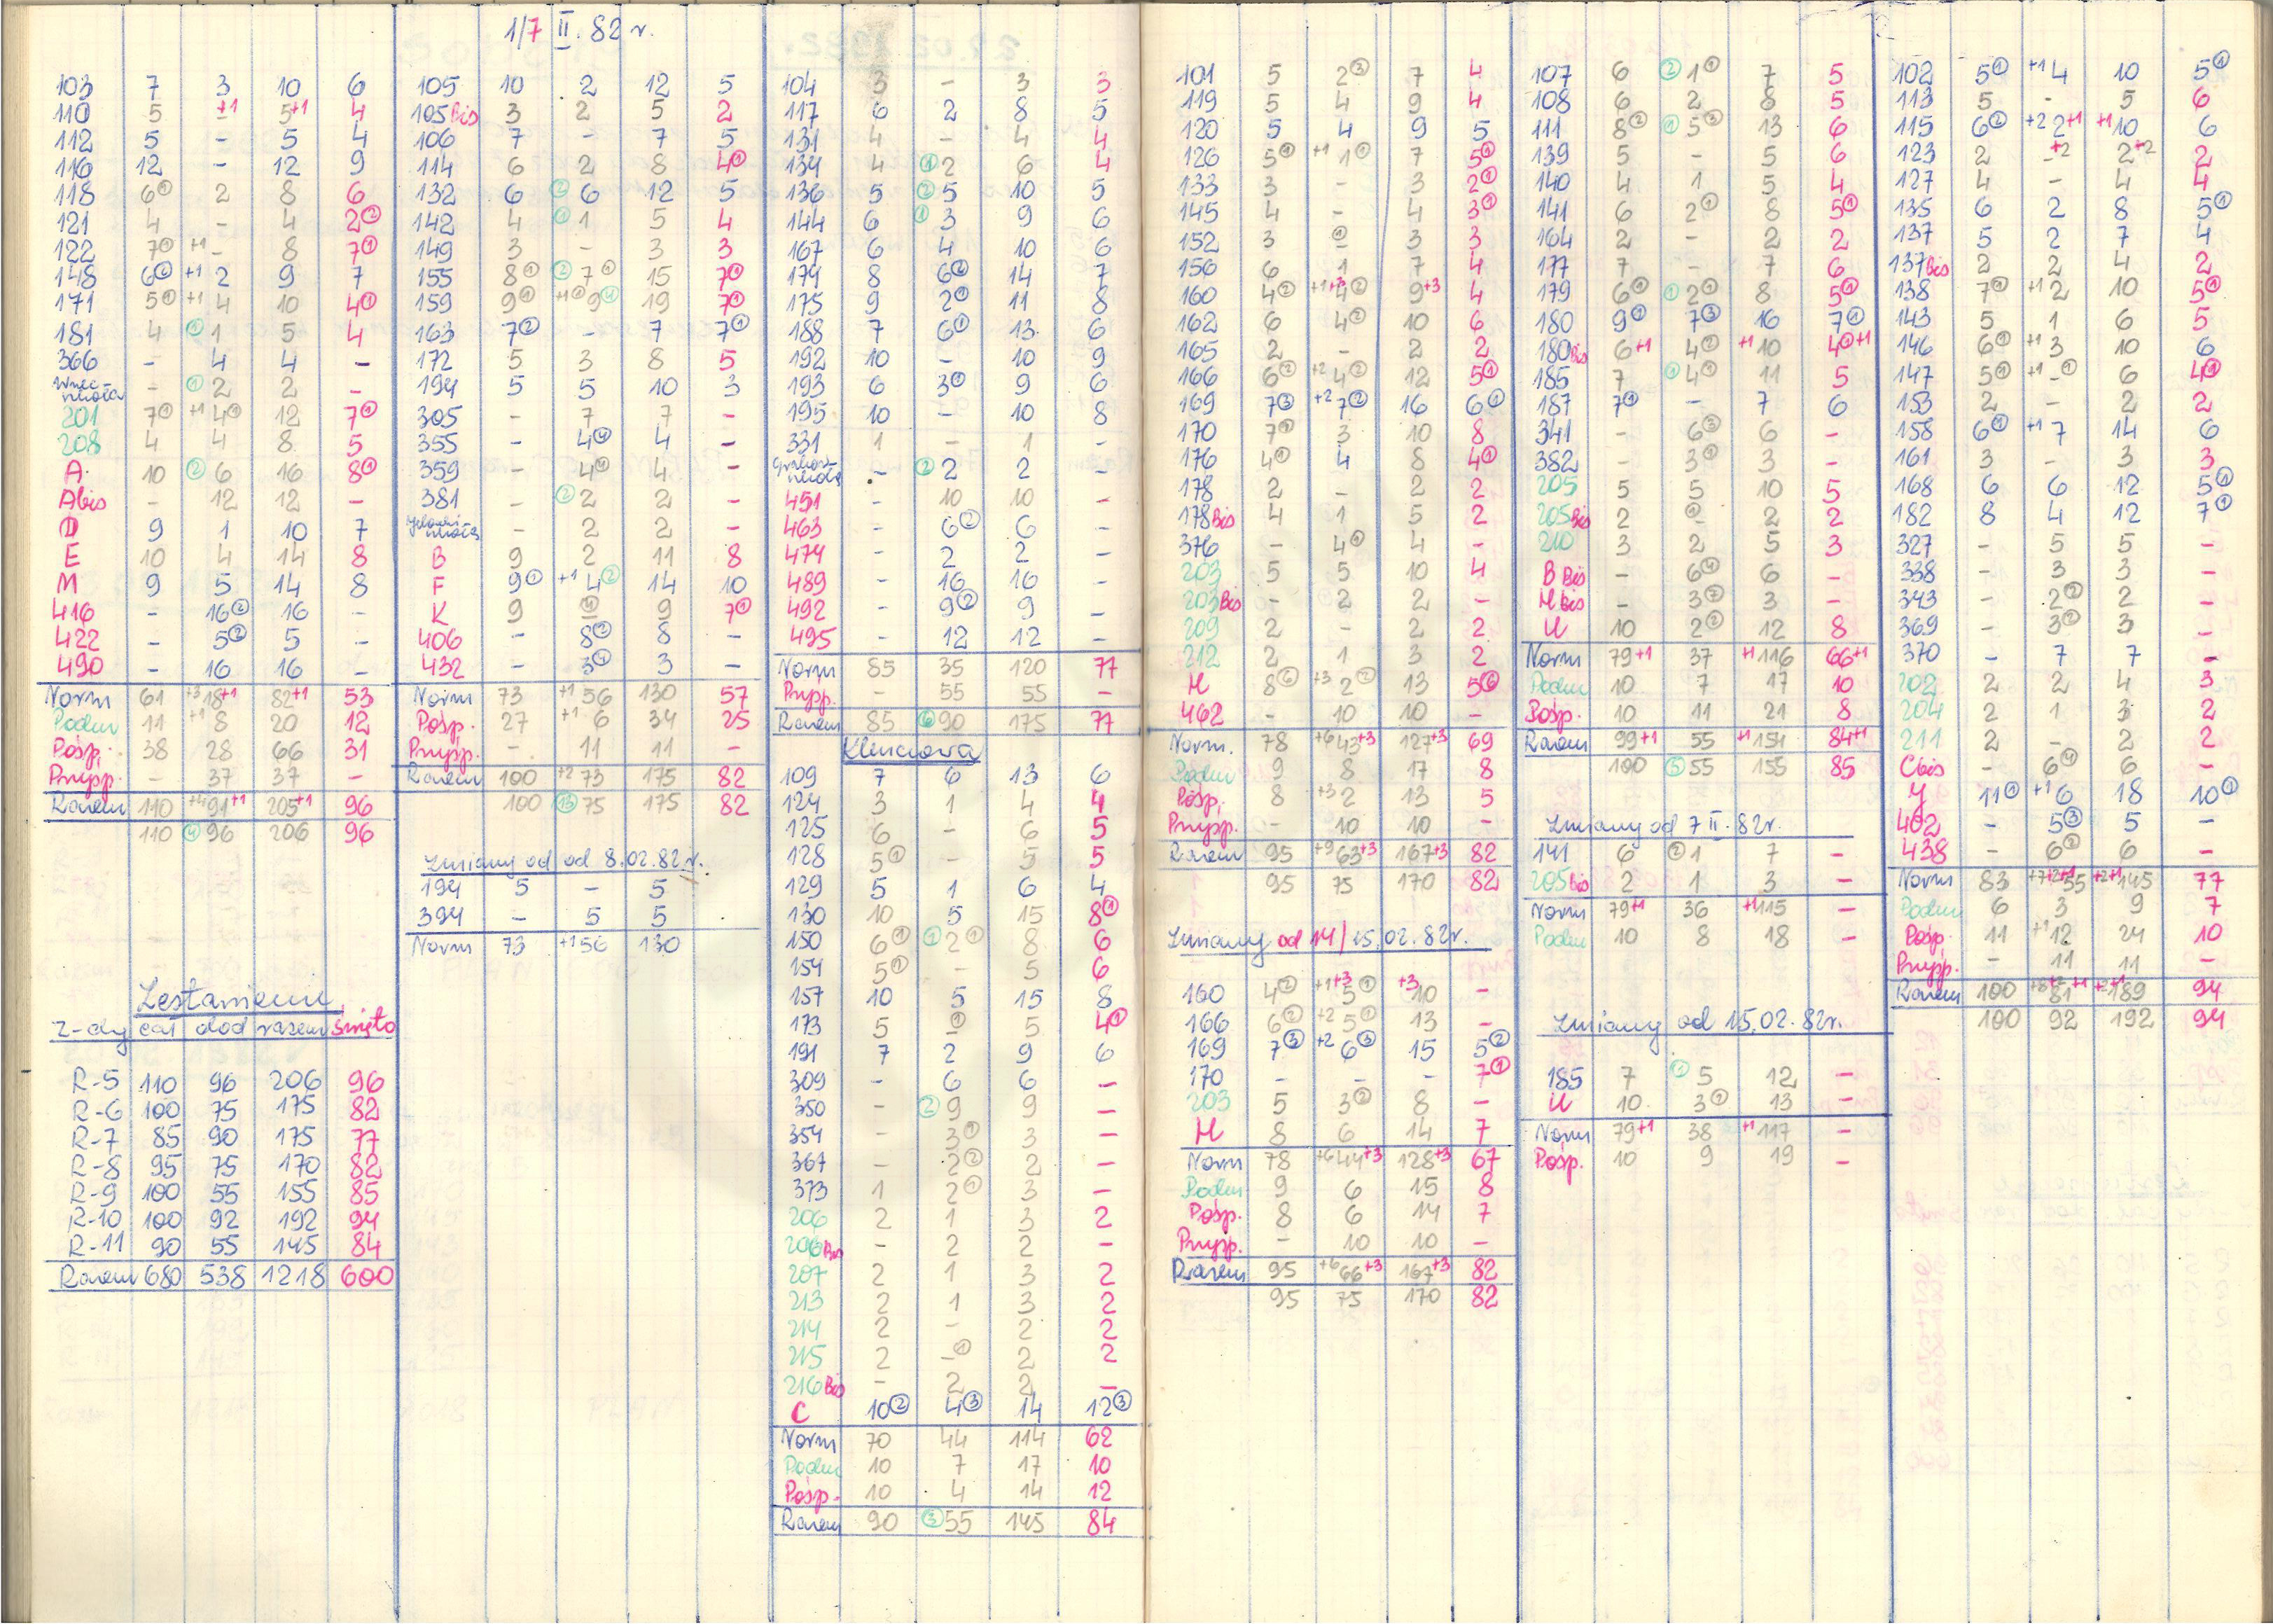 1/7 II. 82 r.
103 7 3 10 6
110 5 -+1 5+1 4
112 5 - 5 4
116 12 - 12 9
118 6① 2 8 6
121 4 - 4 2②
122 7① +1 - 8 7①
148 6② +1 2 9 7
171 5① +1 4 10 4①
181 4 ① 1 5 4
366 - 4 4 -
- ① 2 2 -
201 7① +1 4① 12 7①
208 4 4 8 5
A 10 ② 6 16 8①
Abis - 12 12 -
D 9 1 10 7
E 10 4 14 8
M 9 5 14 8
416 - 16② 16 -
422 - 5② 5 -
490 - 16 16 -
Norm 61 +3 18+1 82+1 53
Podm 11 +1 8 20 12
Pośp. 38 28 66 31
Przysp. - 37 37 -
Razem 110 +4 91+1 205+1 96
110 ④ 96 206 96
Zestawienie
Z-dy cał dod razem święto
R-5 110 96 206 96
R-6 100 75 175 82
R-7 85 90 175 77
R-8 95 75 170 82
R-9 100 55 155 85
R-10 100 92 192 94
R-11 90 55 145 84
Razem 680 538 1218 600
105 10 2 12 5
105 Bis 3 2 5 2
106 7 - 7 5
114 6 2 8 4①
132 6 ② 6 12 5
142 4 ① 1 5 4
149 3 - 3 3
155 8① ② 7① 15 7①
159 9① +1① 9④ 19 7①
163 7② - 7 7①
172 5 3 8 5
194 5 5 10 3
305 - 7 7 -
355 - 4④ 4 -
359 - 4④ 4 -
381 - ② 2 2 -
- 2 2 -
B 9 2 11 8
F 9① +1 4② 14 10
K 9 9 7①
406 - 8② 8 -
432 - 3④ 3 -
Norm 73 +1 56 130 57
Pośp. 27 +1 6 34 25
Przysp. - 11 11 -
Razem 100 +2 73 175 82
100 ⑬ 75 175 82
Zmiany od od 8.02.82 r.
194 5 - 5
394 - 5 5
Norm 73 +1 56 130
104 3 - 3 3
117 6 2 8 5
131 4 - 4 4
134 4 ① 2 6 4
136 5 ② 5 10 5
144 6 ① 3 9 6
167 6 4 10 6
174 8 6② 14 7
175 9 2① 11 8
188 7 6① 13 6
192 10 - 10 9
193 6 3① 9 6
195 10 - 10 8
331 1 - 1 -
- ② 2 2 -
451 - 10 10 -
463 - 6② 6 -
474 - 2 2 -
489 - 16 16 -
492 - 9② 9 -
495 - 12 12 -
Norm 85 35 120 77
Przysp. - 55 55 -
Razem 85 ⑥ 90 175 77
Klenciowa
109 7 6 13 6
124 3 1 4 4
125 6 - 6 5
128 5① - 5 5
129 5 1 6 4
130 10 5 15 8①
150 6① ① 2① 8 6
154 5① - 5 6
157 10 5 15 8
173 5 -① 5 4①
191 7 2 9 6
309 - 6 6 -
350 - ② 9 9 -
354 - 3① 3 -
367 - 2② 2 -
373 1 2① 3 -
206 2 1 3 2
206 Bis - 2 2 -
207 2 1 3 2
213 2 1 3 2
214 2 - 2 2
215 2 -① 2 2
216 Bis - 2 2 -
C 10② 4③ 14 12③
Norm 70 44 114 62
Podm 10 7 17 10
Pośp. 10 4 14 12
Razem 90 ③ 55 145 84
101 5 2③ 7 4
119 5 4 9 4
120 5 4 9 5
126 5① +1 1① 7 5①
133 3 - 3 2①
145 4 - 4 3①
152 3 -① 3 3
156 6 1 7 4
160 4② +1+3 4② 9+3 4
162 6 4② 10 6
165 2 - 2 2
166 6② +2 4② 12 5①
169 7③ +2 7② 16 6①
170 7① 3 10 8
176 4① 4 8 4①
178 2 - 2 2
178 Bis 4 1 5 2
376 - 4① 4 -
203 5 5 10 4
203 Bis - 2 2 -
209 2 - 2 2
212 2 1 3 2
H 8⑥ +3 2② 13 5⑥
462 - 10 10 -
Norm. 78 +6 43+3 127+3 69
Podm 9 8 17 8
Pośp. 8 +3 2 13 5
Przysp. - 10 10 -
Razem 95 +9 63+3 167+3 82
95 75 170 82
Zmiany od 14/15.02.82 r.
160 4② +1+3 5① +3 10 -
166 6② +2 5① 13 -
169 7③ +2 6③ 15 5②
170 - - - 7①
203 5 3② 8 -
H 8 6 14 7
Norm 78 +6 44+3 128+3 67
Podm 9 6 15 8
Pośp. 8 6 14 7
Przysp. - 10 10 -
Razem 95 +6 66+3 167+3 82
95 75 170 82
107 6 ② 1① 7 5
108 6 2 8 5
111 8② ① 5② 13 6
139 5 - 5 6
140 4 1 5 4
141 6 2① 8 5①
164 2 - 2 2
177 7 - 7 6
179 6① ① 2① 8 5①
180 9① 7③ 16 7①
180 Bis 6+1 4② +1 10 4①+1
185 7 ① 4① 11 5
187 7① - 7 6
341 - 6③ 6 -
382 - 3① 3 -
205 5 5 10 5
205 Bis 2 ①- 2 2
210 3 2 5 3
B Bis - 6④ 6 -
H bis - 3② 3 -
U 10 2② 12 8
Norm 79+1 37 +1 116 66+1
Podm 10 7 17 10
Pośp. 10 11 21 8
Razem 99+1 55 +1 154 84+1
100 ⑤ 55 155 85
Zmiany od 7 II. 82 r.
141 6 ② 1 7 -
205 bis 2 1 3 -
Norm 79+1 36 +1 115 -
Podm 10 8 18 -
Zmiany od 15.02.82 r.
185 7 ① 5 12 -
U 10 3① 13 -
Norm 79+1 38 +1 117 -
Pośp. 10 9 19 -
102 5① +1 4 10 5①
113 5 - 5 6
115 6② +2 2+1 +1 10 6
123 2 -+2 2+2 2
127 4 - 4 4
135 6 2 8 5①
137 5 2 7 4
137 Bis 2 2 4 2
138 7① +1 2 10 5①
143 5 1 6 5
146 6① +1 3 10 6
147 5① +1 -① 6 4①
153 2 - 2 2
158 6① +1 7 14 6
161 3 - 3 3
168 6 6 12 5①
182 8 4 12 7①
327 - 5 5 -
338 - 3 3 -
343 - 2② 2 -
369 - 3② 3 -
370 - 7 7 -
202 2 2 4 3
204 2 1 3 2
211 2 - 2 2
Cbis - 6④ 6 -
Y 11① +1 6 18 10①
402 - 5③ 5 -
438 - 6② 6 -
Norm 83 +7+2 55+1 +2+1 145 77
Podm 6 3 9 7
Pośp. 11 +1 12 24 10
Przysp. - 11 11 -
Razem 100 +8+2 81+1 189 94
100 92 192 94